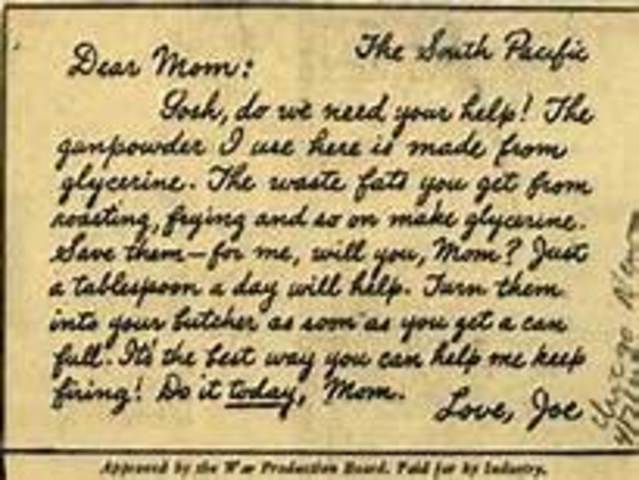 The South Pacific
Dear Mom:
Gosh, do we need your help! The
gunpowder I use here is made from
glycerine. The waste fats you get from
roasting, frying and so on make glycerine.
Save them—for me, will you, Mom? Just
a tablespoon a day will help. Turn them
into your butcher as soon as you get a can
full. It's the best way you can help me keep
firing! Do it today, Mom.
Love, Joe
Approved by the War Production Board. Paid for by Industry.